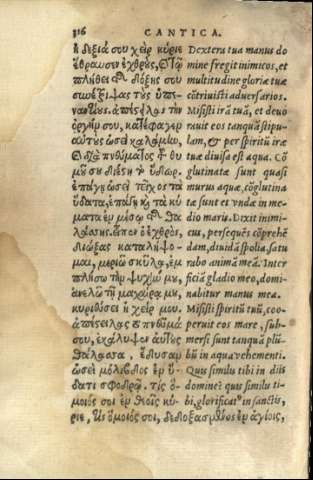 316 CANTICA.
ἡ δεξιά σου χείρ κύριε
ἔθραυσεν ἐχθρούς, καὶ τῷ
πλήθει τῆς δόξης σου
συνέτριψας τοὺς ὑπε-
ναντίους. ἀπέστειλας τὴν
ὀργήν σου, καὶ κατέφαγεν
αὐτοὺς ὡσεὶ καλάμην,
καὶ διὰ πνεύματος τοῦ θυ
μοῦ σου διέστη τὸ ὕδωρ.
ἐπάγη ὡσεὶ τεῖχος τὰ
ὕδατα, ἐπάγη καὶ τὰ κύ
ματα ἐν μέσῳ τῆς θα
λάσσης. εἶπεν ὁ ἐχθρός,
διώξας καταλήψο-
μαι, μεριῶ σκῦλα, ἐμ
πλήσω τὴν ψυχήν μου,
ἀνελῶ τῇ μαχαίρᾳ μου,
κυριεύσει ἡ χείρ μου.
ἀπέστειλας τὸ πνεῦμά
σου, ἐκάλυψεν αὐτοὺς
θάλασσα, ἔδυσαν
ὡσεὶ μόλιβδος ἐν ὕ-
δατι σφοδρῷ. τίς ὅ-
μοιός σοι ἐν θεοῖς κύ-
ριε, τίς ὅμοιός σοι, δεδοξασμένος ἐν ἁγίοις,
Dextera tua manus do
mine fregit inimicos, et
multitudine gloriæ tuæ
cōtrivisti adversarios.
Misisti irā tuā, et devo
ravit eos tanquā stipu-
lam, & per spiritū iræ
tuæ divisa est aqua. Cō
glutinata sunt quasi
murus aquæ, cōglutina
tæ sunt et vndæ in me-
dio maris. Dixit inimi-
cus, persequēs cōprehē
dam, dividā spolia, satu
rabo animā meā. Inter
ficiā gladio meo, domi-
nabitur manus mea.
Misisti spiritū tuū, coo-
peruit eos mare, sub-
mersi sunt tanquā plū-
bū in aqua vehementi.
Quis similis tibi in diis
domine? quis similis ti-
bi, glorificatꝰ in sanctis,